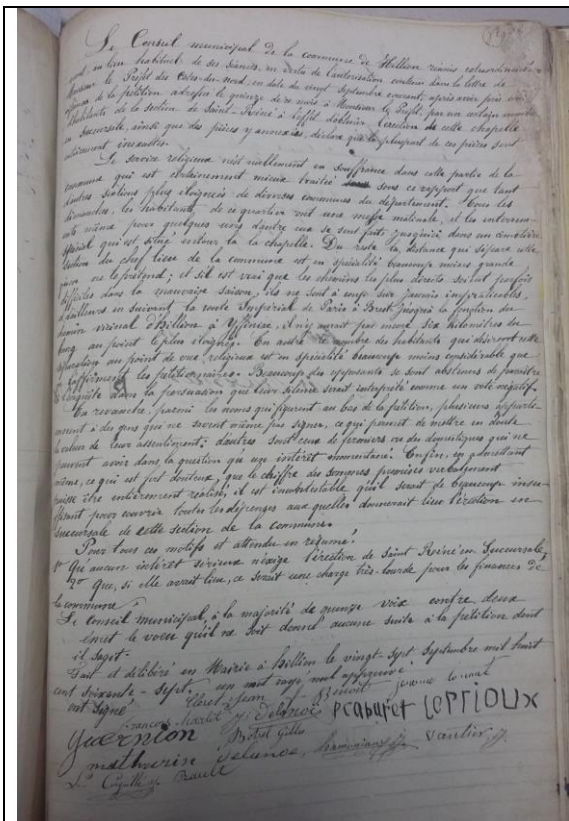 Le Conseil municipal de la commune de Hillion réuni extraordinaire-
ment, au lieu habituel de ses séances, en vertu de l'autorisation contenue dans la lettre de
Monsieur le Préfet des Côtes-du-Nord, en date du vingt Septembre courant, après avoir pris
de la pétition adressée le quinze de ce mois à Monsieur le Préfet, par un certain nombre
d'habitants de la section de Saint-Réné à l'effet d'obtenir l'érection de cette chapelle
en Succursale, ainsi que des pièces y annexées, déclare que la plupart de ces pièces sont
entièrement inexactes.
Le service religieux n'est nullement en souffrance dans cette partie de la
commune qui est certainement mieux traitée sous ce rapport que tant
d'autres sections plus éloignées de diverses communes du département. Tous les
dimanches, les habitants de ce quartier ont une messe matinale, et les enterrem-
ents même pour quelques uns d'entre eux se sont faits jusqu'ici dans un cimetière
spécial qui est situé autour de la chapelle. Du reste la distance qui sépare cette
section du chef lieu de la commune est en spécialité beaucoup moins grande
qu'on ne le prétend; et s'il est vrai que les chemins les plus directs soient parfois
difficiles dans la mauvaise saison, ils ne sont à coup sûr jamais impraticables,
d'ailleurs en suivant la route Impérial de Paris à Brest jusqu'à la jonction du
chemin vicinal d'Hillion à Yffiniac, il n'y aurait pas même six kilomètres du
bourg au point le plus éloigné. En outre le nombre des habitants qui désirent cette
séparation au point de vue religieux est en spécialité beaucoup moins considérable que
ne l'affirment les pétitionnaires. Beaucoup des opposants se sont abstenus de paraître
à l'enquête dans la persuasion que leur silence serait interprété comme un vote négatif.
En revanche, parmi les noms qui figurent au bas de la pétition, plusieurs appartie-
nnent à des gens qui ne savent même pas signer, ce qui permet de mettre en doute
la valeur de leur assentiment; d'autres sont ceux de fermiers ou des domestiques qui ne
peuvent avoir dans la question qu'un intérêt momentané. Enfin, en admettant
même, ce qui est fort douteux, que le chiffre des sommes promises verbalement
puisse être entièrement réalisé, il est incontestable qu'il serait de beaucoup insu-
ffisant pour couvrir toutes les dépenses aux quelles donnerait lieu l'érection en
succursale de cette section de la commune.
Pour tous ces motifs et attendu en résumé:
1º Que aucun intérêt sérieux n'exige l'érection de Saint Réné en Succursale,
2º Que, si elle avait lieu, ce serait une charge très-lourde pour les finances de
la commune;
Le Conseil municipal, à la majorité de quinze voix contre deux
émet le vœu qu'il ne soit donné aucune suite à la pétition dont
il s'agit.
Fait et délibéré en Mairie à Hillion le vingt-Sept Septembre mil huit
cent soixante-sept. un mot rayé nul approuvé.
ont signé
Jean Benoit
François Marlet J. Delanoë Pcabaret LEPRIOUX
Guernion Botrel Gilles
mathurin Delanoe, Vautier